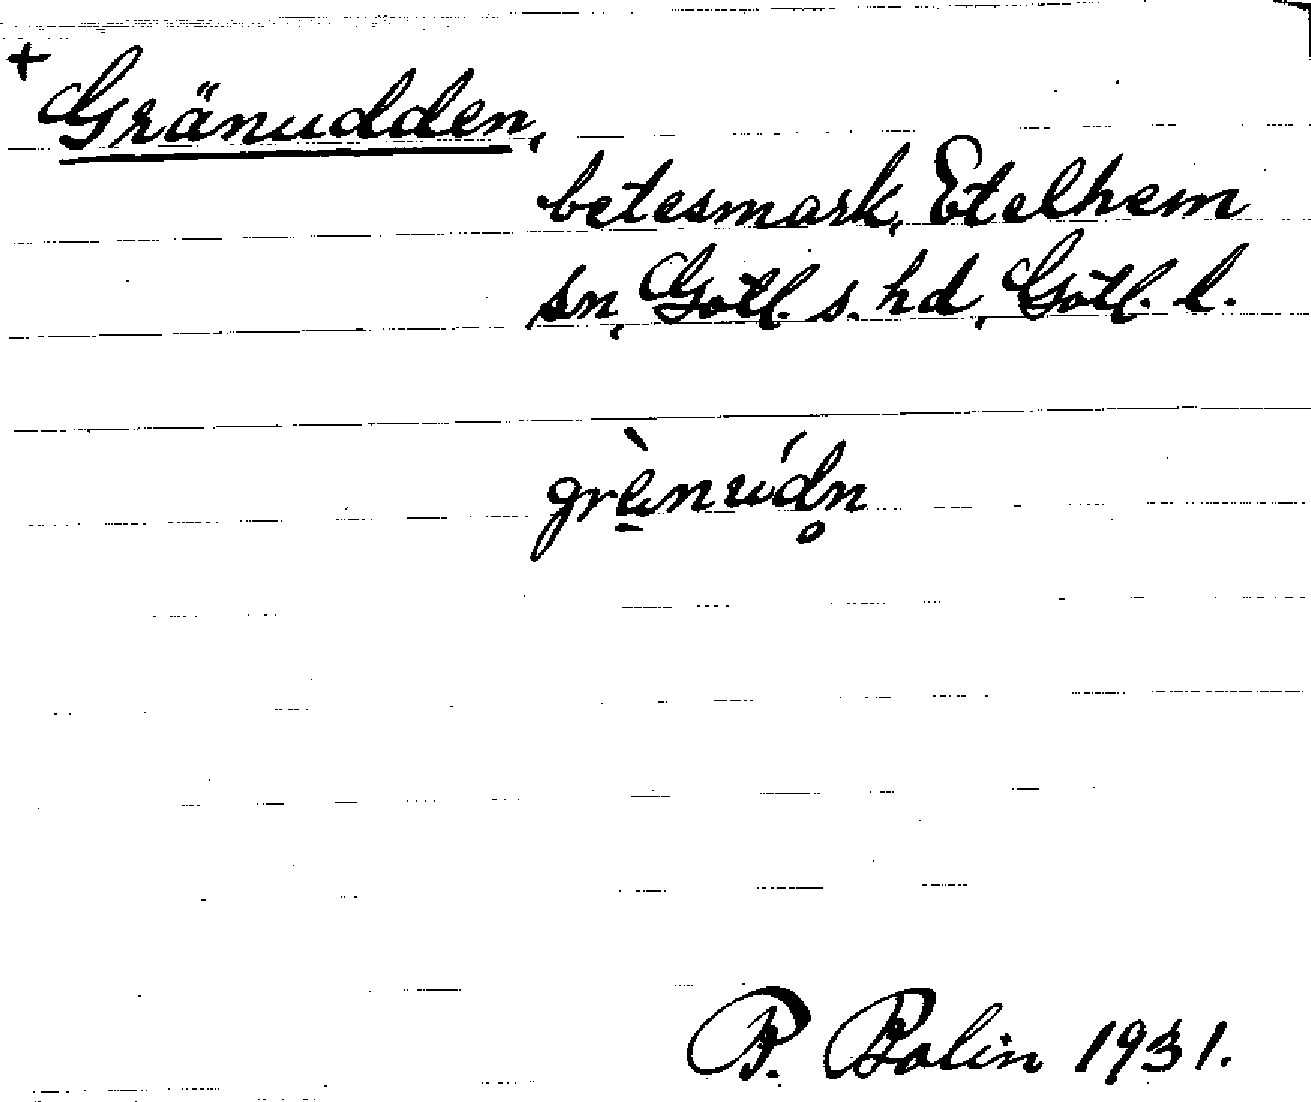 + Gränudden,
betesmark, Etelhem
sn, Gotl. s. hd, Gotl. l.
grènúdn
P. Bolin 1931.